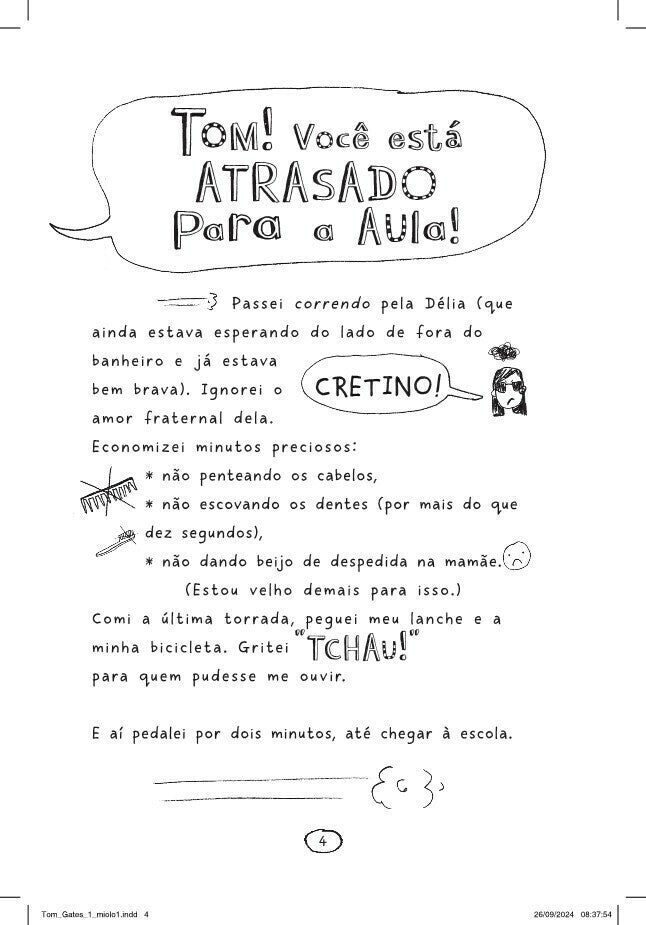 TOM! Você está
ATRASADO
Para a Aula!
Passei correndo pela Délia (que
ainda estava esperando do lado de fora do
banheiro e já estava
bem brava). Ignorei o
amor fraternal dela.
CRETINO!
Economizei minutos preciosos:
* não penteando os cabelos,
* não escovando os dentes (por mais do que
dez segundos),
* não dando beijo de despedida na mamãe.
(Estou velho demais para isso.)
Comi a última torrada, peguei meu lanche e a
minha bicicleta. Gritei "TCHAU!"
para quem pudesse me ouvir.
E aí pedalei por dois minutos, até chegar à escola.
4
Tom_Gates_1_miolo1.indd 4
26/09/2024 08:37:54